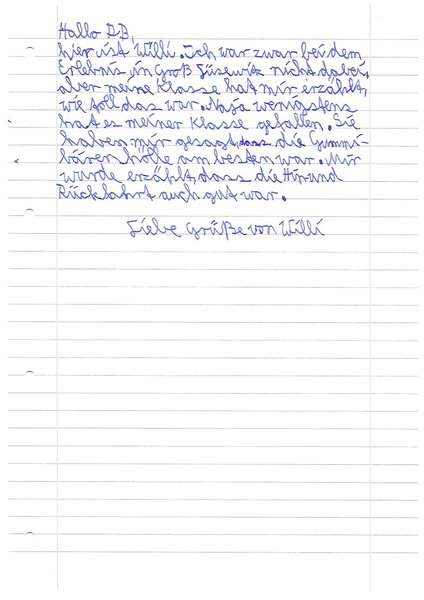 Hallo DB,
hier ist Willi. Ich war zwar bei dem
Erlebnis, in Groß Lüsewitz nicht dabei,
aber meine Klasse hat mir erzählt,
wie toll das war. Naja wenigstens
hat es meiner Klasse gefallen. Sie
haben mir gesagt, dass die Gummi-
bären hölle am besten war. Mir
wurde erzählt, dass die Hin und
Rückfahrt auch gut war.
Liebe Grüße von Willi